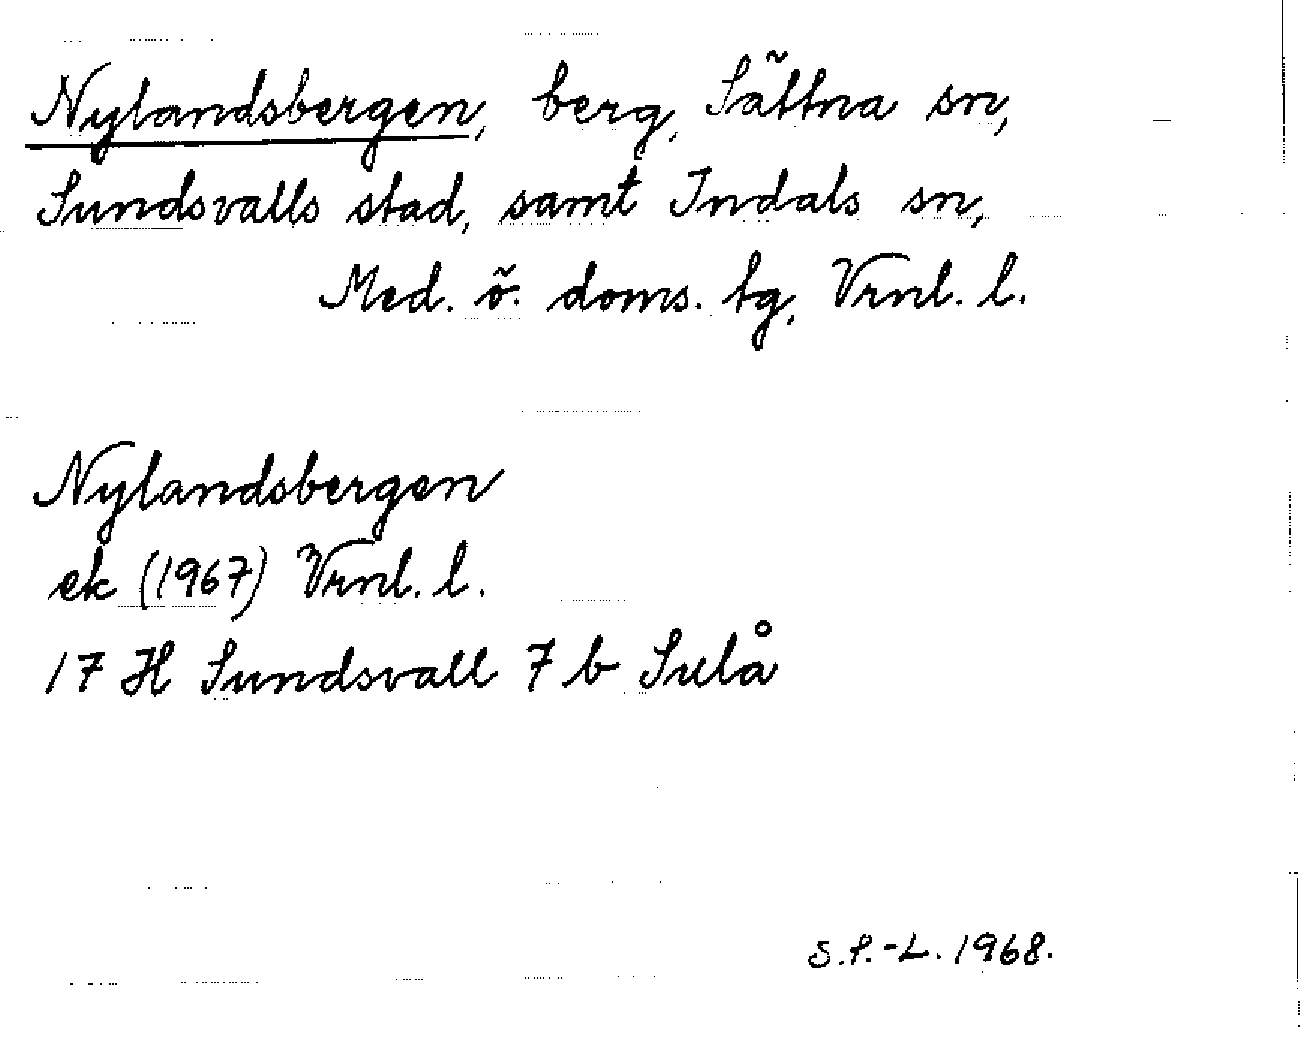 Nylandsbergen, berg, Sättna sn,
Sundsvalls stad, samt Indals sn,
Med. ö. doms. tg, Vrnl. l.
Nylandsbergen
ek (1967) Vrnl. l.
17 H Sundsvall 7 b Sulå
S.P.-L. 1968.